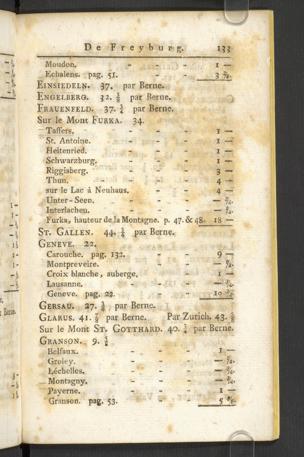 De Freyburg. 133
Moudon. - - - 1 —
Echalens. pag. 51. 3 ¾.
EINSIEDELN. 37. par Berne.
ENGELBERG. 32. par Berne.
FRAUENFELD. 37. ¼ par Berne.
Sur le Mont FURKA. 34.
Taffers. - - - 1 —
St. Antoine. - - - 1 —
Heitenried. - - - 1 —
Schwarzburg. - - - 1 —
Riggisberg. - - - 3 —
Thun. - - - 4 —
sur le Lac à Neuhaus. - - 4 —
Unter-Seen. - - -
Interlachen. - - -
Furka, hauteur de la Montagne. p. 47. & 48. 18 —
ST. GALLEN. 44. ¼ par Berne.
GENEVE. 22.
Carouche. pag. 132. 9 —
Montpreveire. - - -
Croix blanche, auberge. - 1 —
Lausanne. - - -
Geneve. pag. 23. 10
GERSAU. 27. par Berne.
GLARUS. 41. par Berne. Par Zurich. 43.
Sur le Mont ST. GOTTHARD. 40. par Berne.
GRANSON. 9. ¼
Belfaux. - - - 1 —
Groley. - - -
Léchelles. - - -
Montagny. - - -
Payerne. - - - 1 —
Granson. pag. 53. 5